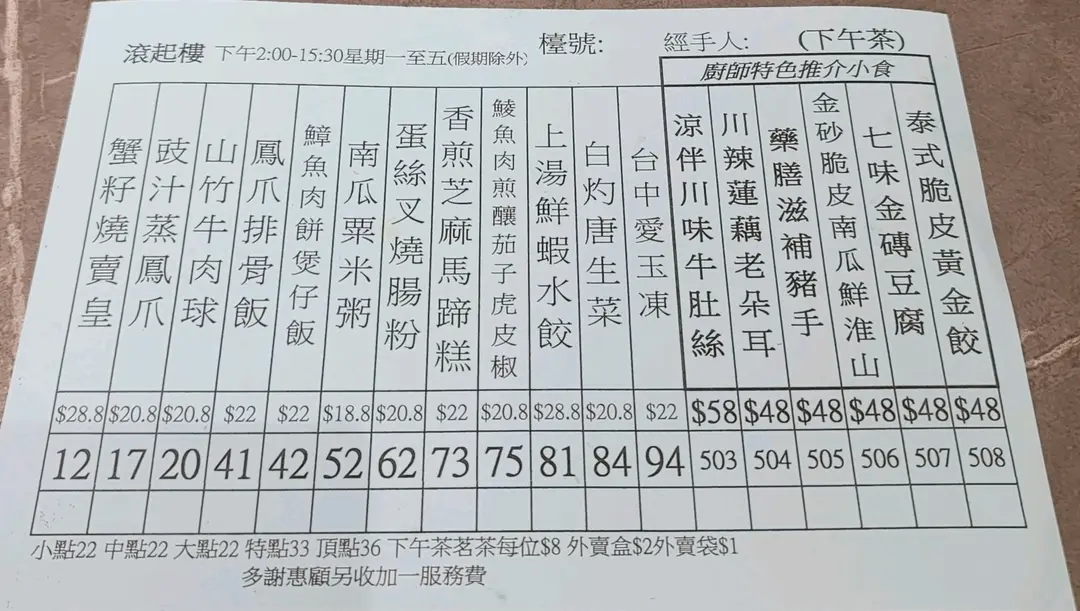 滾起樓 下午2:00-15:30星期一至五(假期除外) 檯號: 經手人: (下午茶)
廚師特色推介小食
蟹籽燒賣皇
豉汁蒸鳳爪
山竹牛肉球
鳳爪排骨飯
鱆魚肉餅煲仔飯
南瓜粟米粥
蛋絲叉燒腸粉
香煎芝麻馬蹄糕
鯪魚肉煎釀茄子虎皮椒
上湯鮮蝦水餃
白灼唐生菜
台中愛玉凍
涼伴川味牛肚絲
川辣蓮藕老朵耳
藥膳滋補豬手
金砂脆皮南瓜鮮淮山
七味金磚豆腐
泰式脆皮黃金餃
$28.8 $20.8 $20.8 $22 $22 $18.8 $20.8 $22 $20.8 $28.8 $20.8 $22 $58 $48 $48 $48 $48 $48
12 17 20 41 42 52 62 73 75 81 84 94 503 504 505 506 507 508
小點22 中點22 大點22 特點33 頂點36 下午茶茗茶每位$8 外賣盒$2外賣袋$1
多謝惠顧另收加一服務費